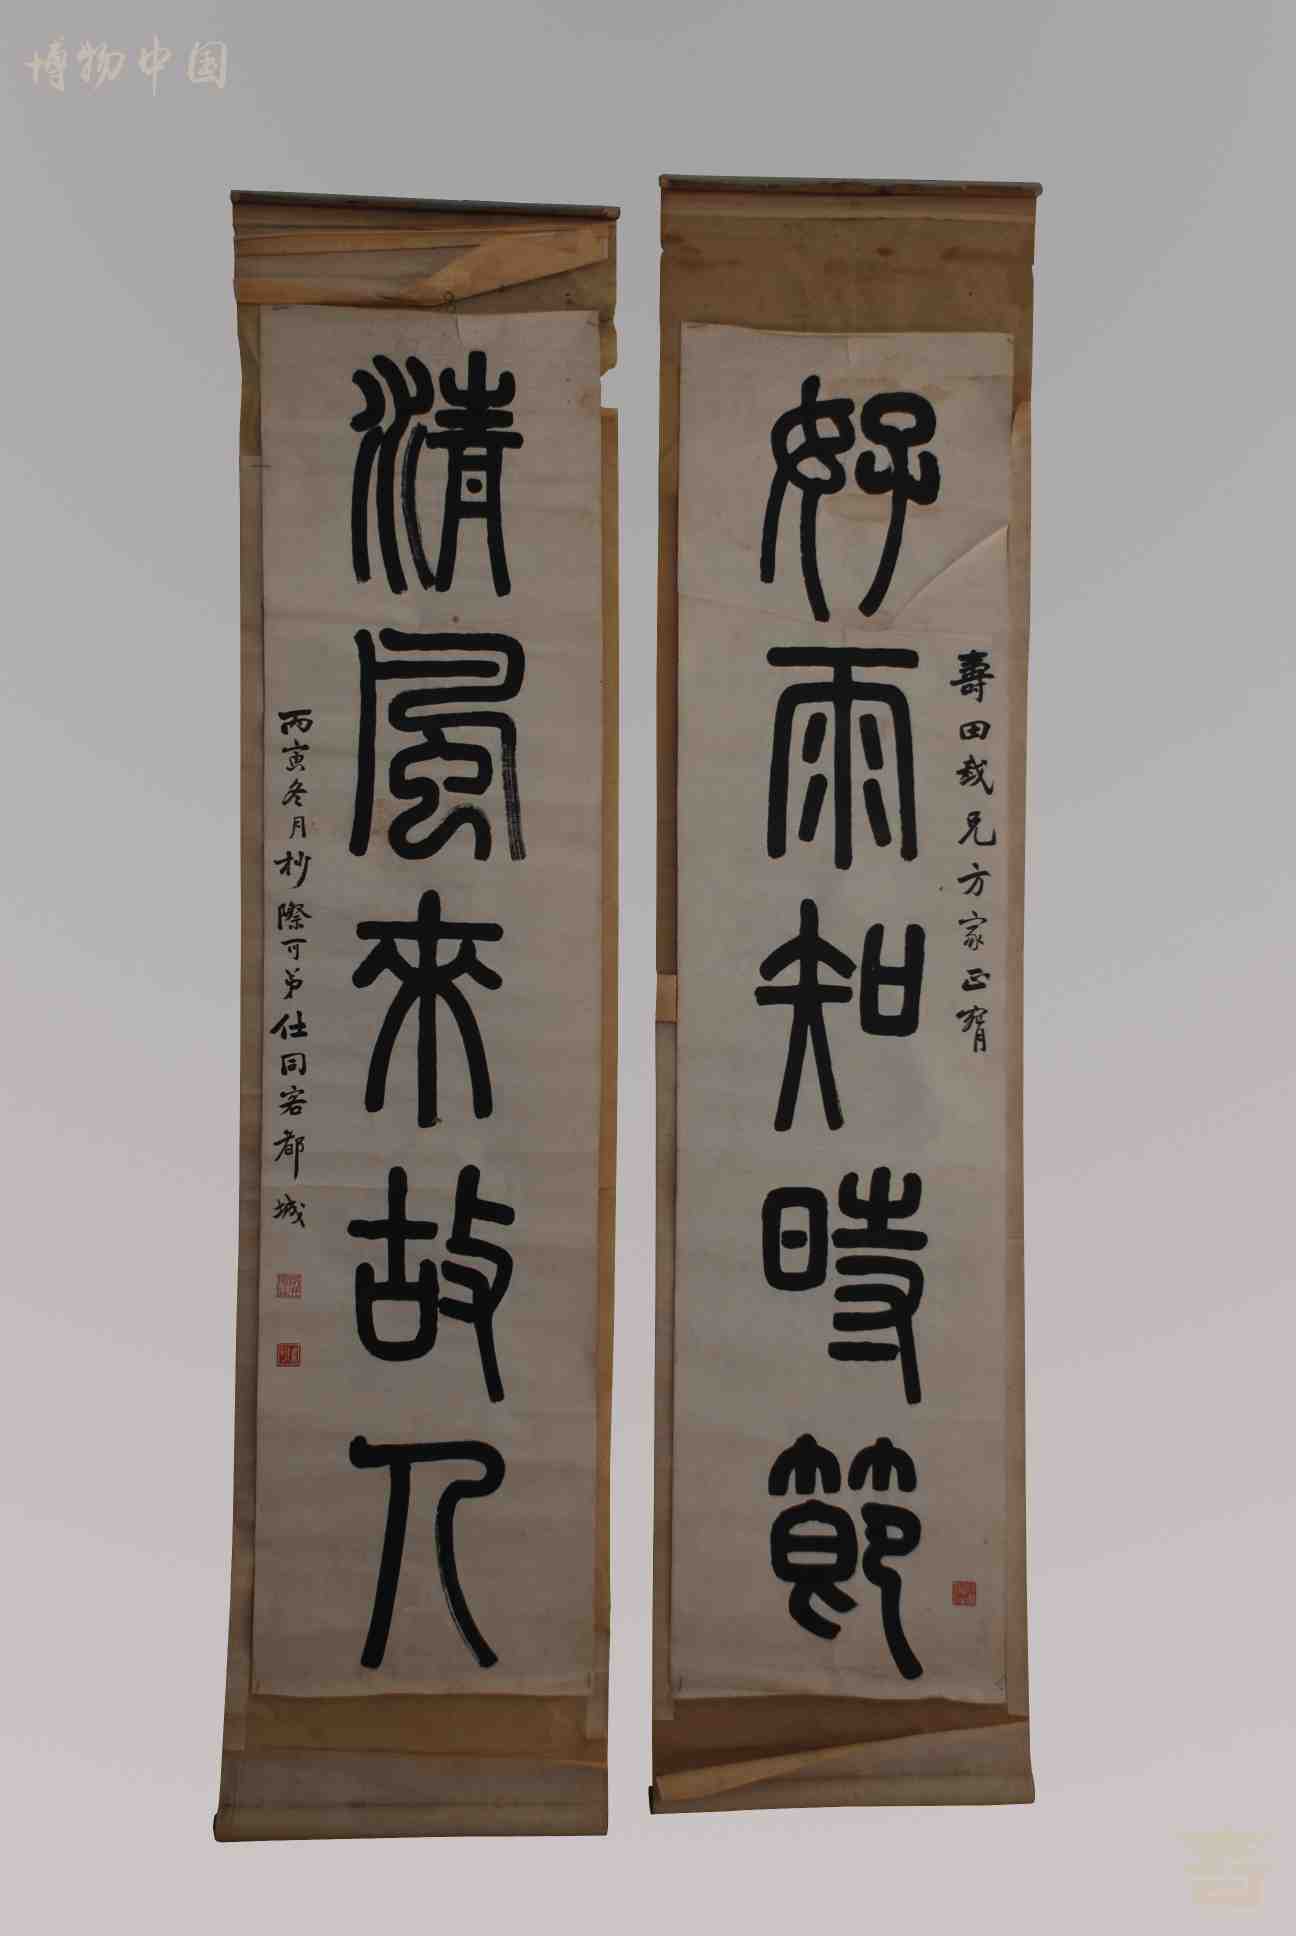 博物中国
好雨知時節
壽田哉兄方家正腕
清風來故人
丙寅冬月杪際可弟仕同客都城